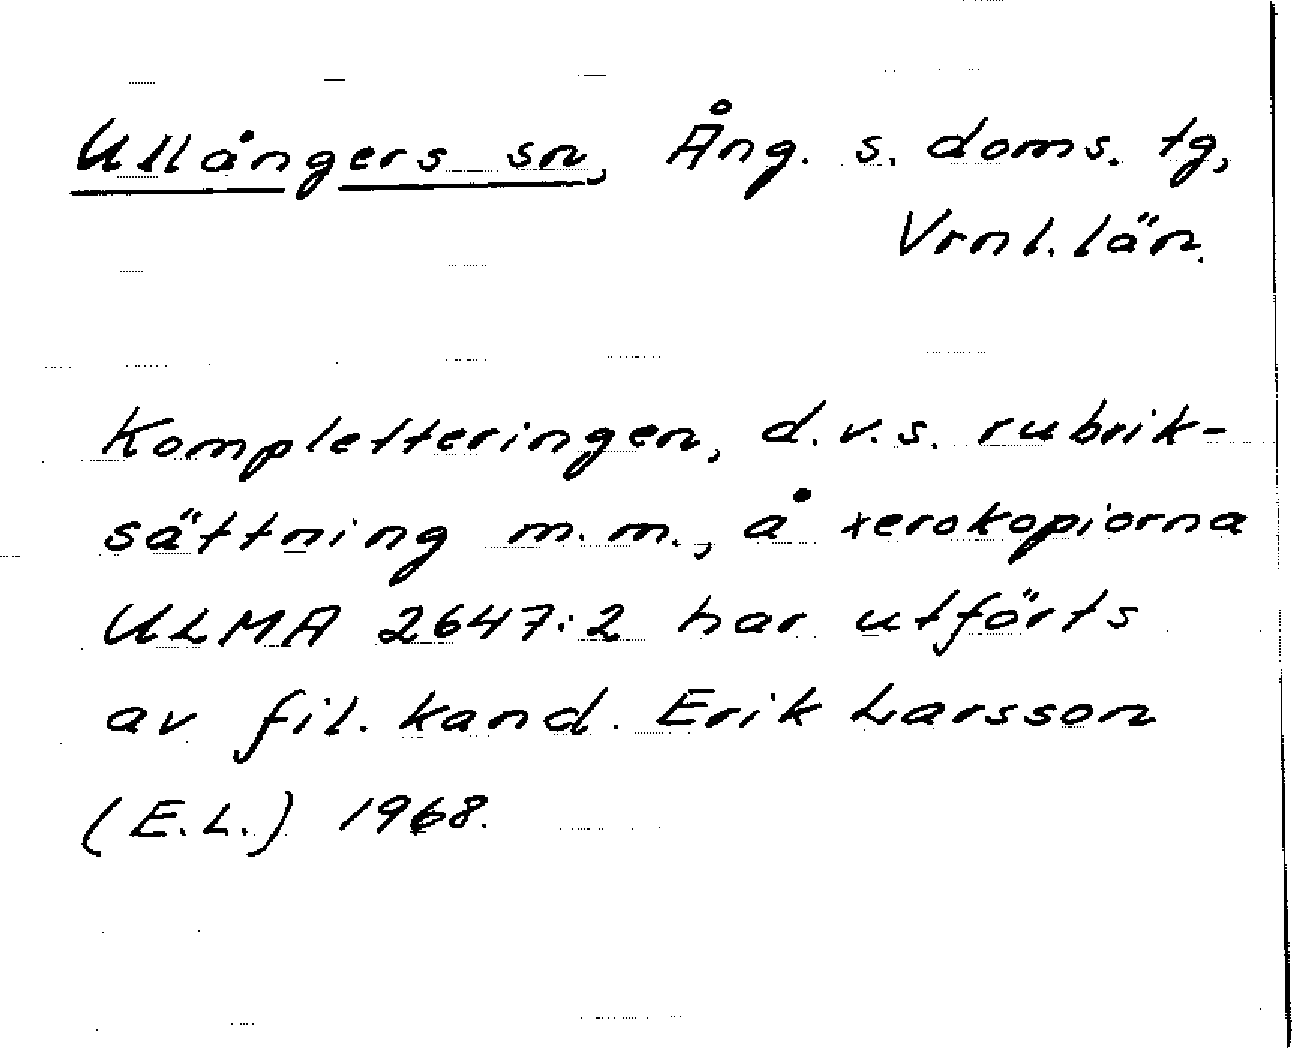 Ullångers sn, Ång. s. doms. tg,
Vrnl. län.
Kompletteringen, d.v.s. rubrik-
sättning m.m., å xerokopiorna
ULMA 2647:2 har utförts
av fil. kand. Erik Larsson
(E.L.) 1968.